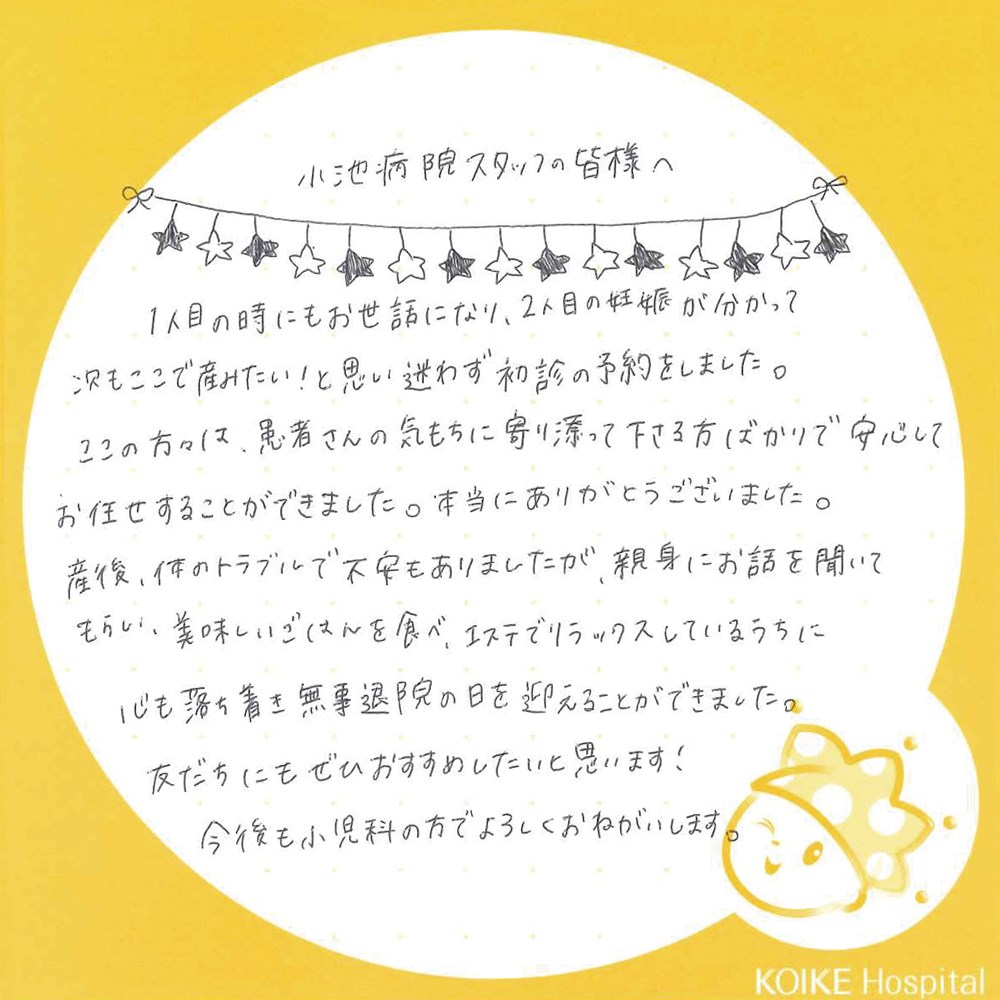 小池病院スタッフの皆様へ
1人目の時にもお世話になり、2人目の妊娠が分かって
次もここで産みたい!と思い迷わず初診の予約をしました。
ここの方々は、患者さんの気もちに寄り添って下さる方ばかりで安心して
お任せすることができました。本当にありがとうございました。
産後、体のトラブルで不安もありましたが、親身にお話を聞いて
もらい、美味しいごはんを食べ、エステでリラックスしているうちに
心も落ち着き無事退院の日を迎えることができました。
友だちにもぜひおすすめしたいと思います!
今後も小児科の方でよろしくおねがいします。
KOIKE Hospital